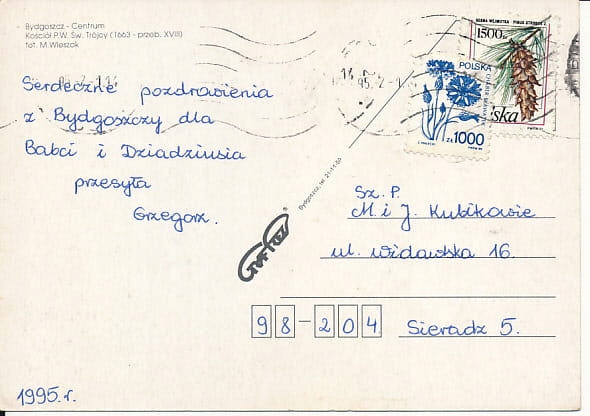 Bydgoszcz - Centrum
Kościół P.W. Św. Trójcy (1663 - przeb. XVIII)
fot. M.Wieszok
Serdeczne pozdrowienia
z Bydgoszczy dla
Babci i Dziadziusia
przesyła
Grzegorz.
1995.r.
Bydgoszcz, tel. 21-11-60
SOSNA WEJMUTKA PINUS STROBUS L
1500zł
POLSKA
zł 1000
95
Sz. P.
M. i J. Kubikowie
ul. Widawska 16.
98-204 Sieradz 5.